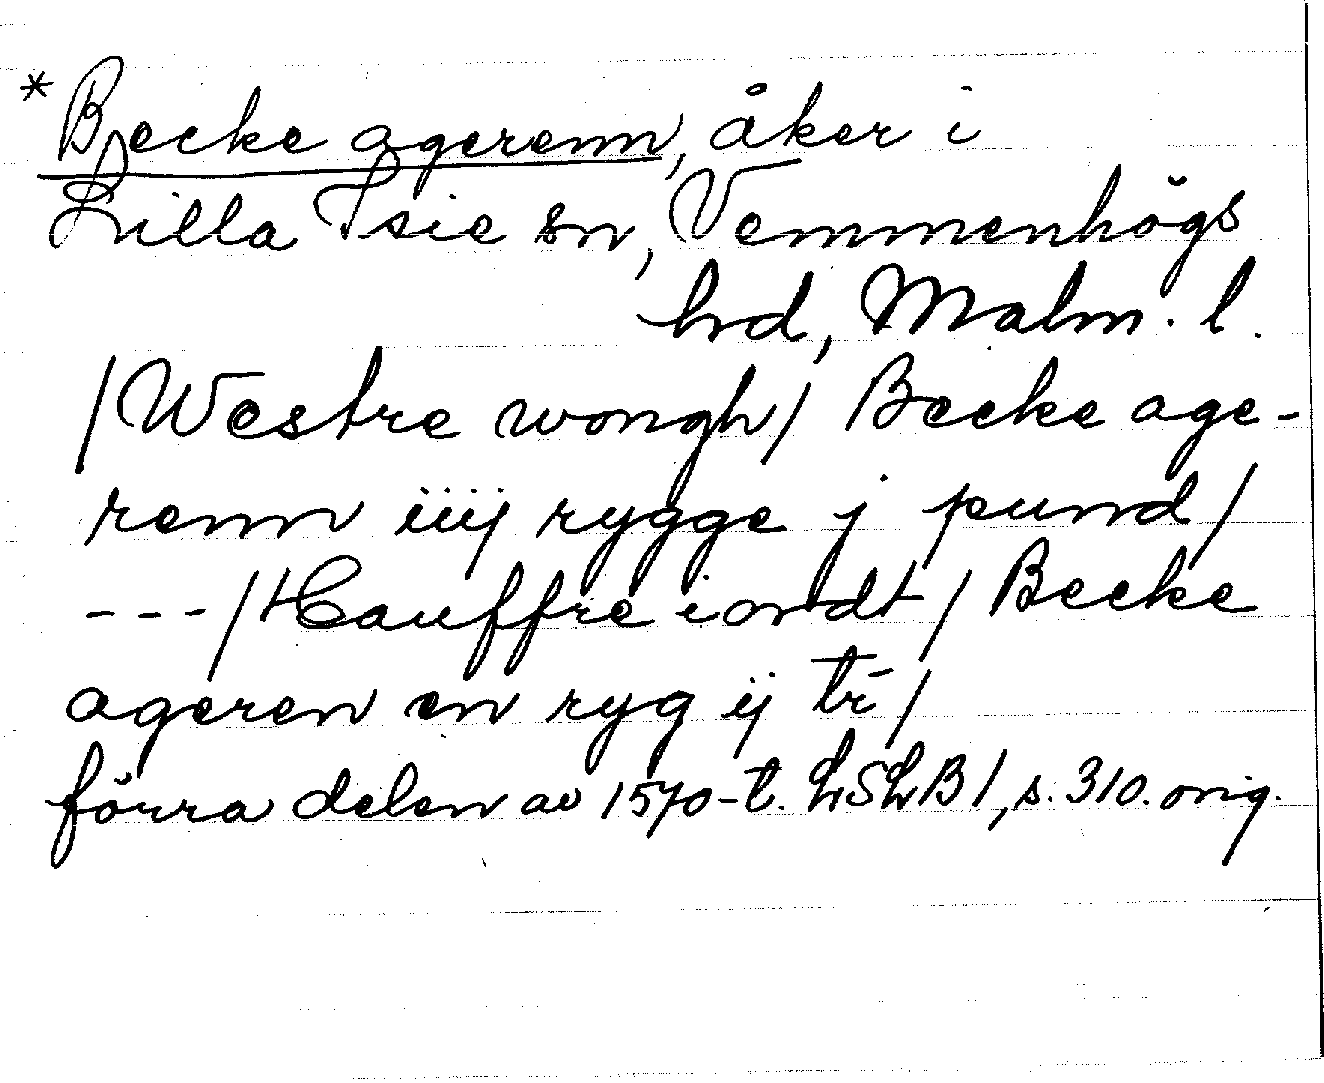 * Becke agerenn, åker i
Lilla Isie sn, Vemmenhögs
hrd, Malm. l.
/Westre wongh/ Becke age-
renn iiij rygge j pund/
---/Hauffre iordt/ Becke
ageren en ryg ij tr̄/
förra delen av 1570-t. LSLB1, s. 310. orig.